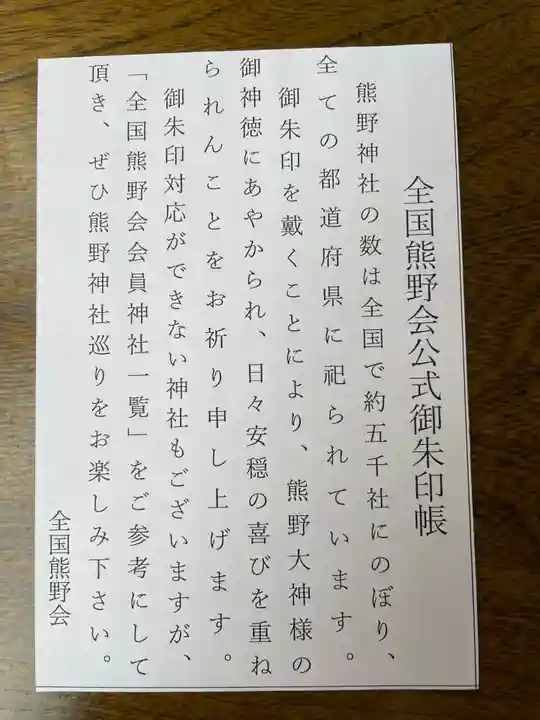 全国熊野会公式御朱印帳
熊野神社の数は全国で約五千社にのぼり、
全ての都道府県に祀られています。
御朱印を戴くことにより、熊野大神様の
御神徳にあやかられ、日々安穏の喜びを重ね
られんことをお祈り申し上げます。
御朱印対応ができない神社もございますが、
「全国熊野会会員神社一覧」をご参考にして
頂き、ぜひ熊野神社巡りをお楽しみ下さい。
全国熊野会